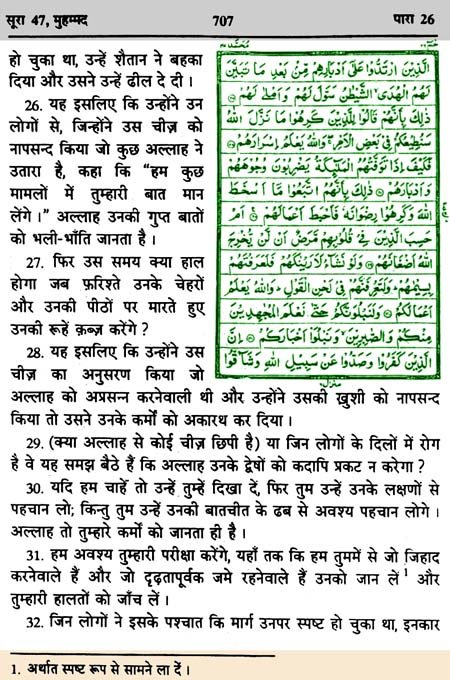 सूरा 47, मुहम्मद 707 पारा 26
हो चुका था, उन्हें शैतान ने बहका
दिया और उसने उन्हें ढील दे दी।
26. यह इसलिए कि उन्होंने उन
लोगों से, जिन्होंने उस चीज़ को
नापसन्द किया जो कुछ अल्लाह ने
उतारा है, कहा कि “हम कुछ
मामलों में तुम्हारी बात मान
लेंगे।” अल्लाह उनकी गुप्त बातों
को भली-भाँति जानता है।
27. फिर उस समय क्या हाल
होगा जब फ़रिश्ते उनके चेहरों
और उनकी पीठों पर मारते हुए
उनकी रूहें क़ब्ज़ करेंगे?
28. यह इसलिए कि उन्होंने उस
चीज़ का अनुसरण किया जो
الَّذِينَ ارْتَدُّوا عَلَىٰ أَدْبَارِهِمْ مِّنْ بَعْدِ مَا تَبَيَّنَ
لَهُمُ الْهُدَى الشَّيْطٰنُ سَوَّلَ لَهُمْ وَأَمْلَىٰ لَهُمْ
ذٰلِكَ بِأَنَّهُمْ قَالُوا لِلَّذِينَ كَرِهُوا مَا نَزَّلَ اللهُ
سَنُطِيعُكُمْ فِي بَعْضِ الْأَمْرِ وَاللهُ يَعْلَمُ إِسْرَارَهُمْ
فَكَيْفَ إِذَا تَوَفَّتْهُمُ الْمَلٰئِكَةُ يَضْرِبُونَ وُجُوهَهُمْ
وَأَدْبَارَهُمْ ذٰلِكَ بِأَنَّهُمُ اتَّبَعُوا مَا أَسْخَطَ
اللهَ وَكَرِهُوا رِضْوَانَهُ فَأَحْبَطَ أَعْمَالَهُمْ أَمْ
حَسِبَ الَّذِينَ فِي قُلُوبِهِمْ مَّرَضٌ أَنْ لَّنْ يُّخْرِجَ
اللهُ أَضْغَانَهُمْ وَلَوْ نَشَاءُ لَأَرَيْنٰكَهُمْ فَلَعَرَفْتَهُمْ
بِسِيْمٰهُمْ وَلَتَعْرِفَنَّهُمْ فِي لَحْنِ الْقَوْلِ وَاللهُ يَعْلَمُ
أَعْمَالَكُمْ وَلَنَبْلُوَنَّكُمْ حَتَّىٰ نَعْلَمَ الْمُجٰهِدِينَ
مِنْكُمْ وَالصّٰبِرِينَ وَنَبْلُوَا أَخْبَارَكُمْ إِنَّ
الَّذِينَ كَفَرُوا وَصَدُّوا عَنْ سَبِيلِ اللهِ وَشَاقُّوا
अल्लाह को अप्रसन्न करनेवाली थी और उन्होंने उसकी ख़ुशी को नापसन्द
किया तो उसने उनके कर्मों को अकारथ कर दिया।
29. (क्या अल्लाह से कोई चीज़ छिपी है) या जिन लोगों के दिलों में रोग
है वे यह समझ बैठे हैं कि अल्लाह उनके द्वेषों को कदापि प्रकट न करेगा?
30. यदि हम चाहें तो उन्हें तुम्हें दिखा दें, फिर तुम उन्हें उनके लक्षणों से
पहचान लो; किन्तु तुम उन्हें उनकी बातचीत के ढब से अवश्य पहचान लोगे।
अल्लाह तो तुम्हारे कर्मों को जानता ही है।
31. हम अवश्य तुम्हारी परीक्षा करेंगे, यहाँ तक कि हम तुममें से जो जिहाद
करनेवाले हैं और जो दृढ़तापूर्वक जमे रहनेवाले हैं उनको जान लें¹ और
तुम्हारी हालतों को जाँच लें।
32. जिन लोगों ने इसके पश्चात कि मार्ग उनपर स्पष्ट हो चुका था, इनकार
1. अर्थात स्पष्ट रूप से सामने ला दें।